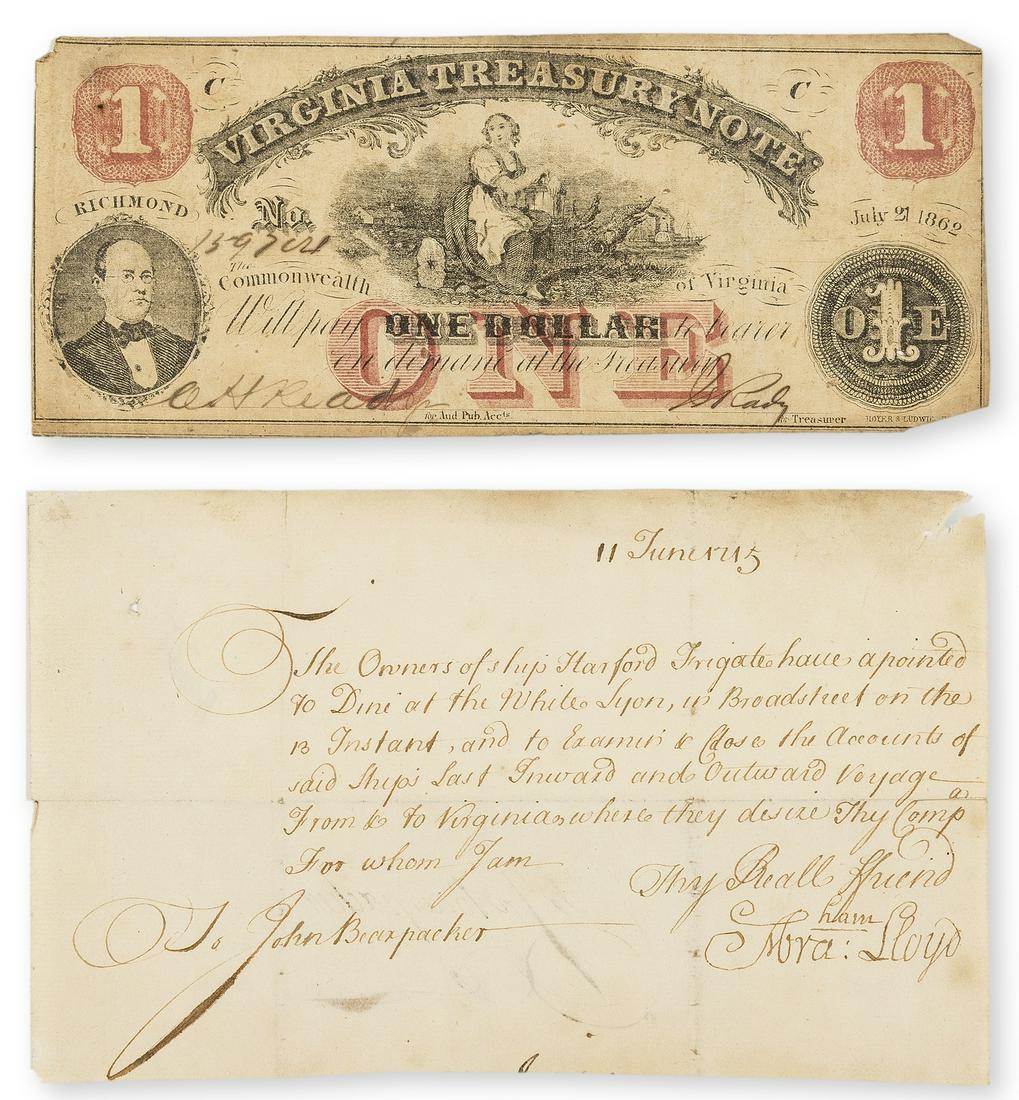 1 C VIRGINIA TREASURY NOTE C 1
RICHMOND No. July 21 1862
The
Commonwealth of Virginia
Will pay ONE DOLLAR to bearer
ONE
on demand at the Treasury
ONE
1
for Aud. Pub. Accts
for Treasurer
HOYER & LUDWIG,
11 June 1715
The Owners of ship Harford Frigate haue apointed
to Dine at the White Lyon, in Broadstreet on the
13 Instant, and to Examin & Close the Accounts of
said Ships Last Inward and Outward Voyage
From & to Virginia where they desire Thy Compa:
For whom I am
Thy Reall ffriend
Abraham: Lloyd
To John Bearpacker